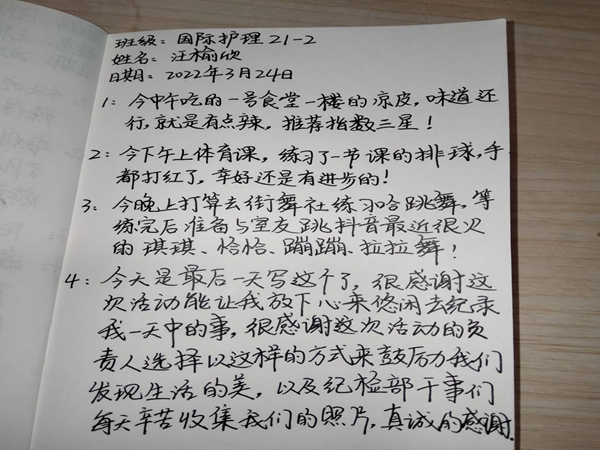 班级：国际护理21-2
姓名：汪榆欣
日期：2022年3月24日
1：今中午吃的一号食堂一楼的凉皮，味道还
行，就是有点辣，推荐指数三星！
2：今下午上体育课，练习了一节课的排球，手
都打红了，幸好还是有进步的！
3：今晚上打算去街舞社练习哈跳舞，等
练完后准备与室友跳抖音最近很火
的琪琪、恰恰、蹦蹦、拉拉舞！
4：今天是最后一天写这个了，很感谢这
次活动能让我放下心来悠闲去纪录
我一天中的事，很感谢这次活动的负
责人选择以这样的方式来鼓励我们
发现生活的美，以及纪检部干事们
每天辛苦收集我们的照片，真诚的感谢.